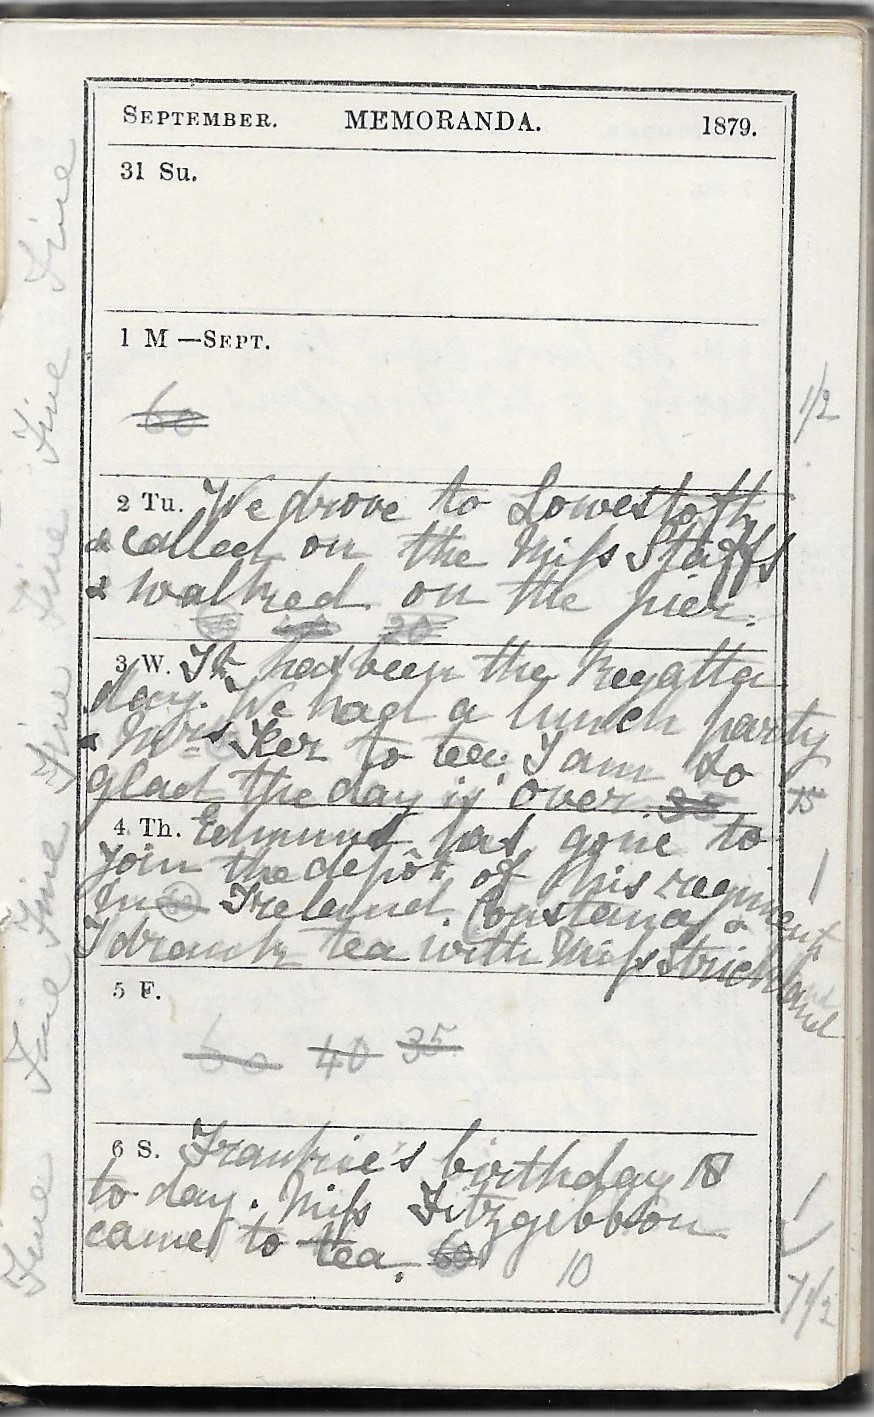 SEPTEMBER. MEMORANDA. 1879.
31 Su.
1 M —SEPT.
60
1/2
2 Tu. We drove to Lowestoft
& called on the Miss Staffs
& walked on the pier.
20
3 W. It has been the Regatta
day. We had a lunch party
& Mrs Ker to tea. I am so
glad the day is over 35
15
4 Th. Edmund has gone to
join the depôt of his regiment
in Ireland. Constance &
I drank tea with Miss Strickland
1
5 F.
60 40 35
6 S. Frankie's birthday 18
to-day. Miss Fitzgibbon
came to tea. 60
10
1
7 1/2
Fine Fine Fine Fine Fine Fine Fine Fine